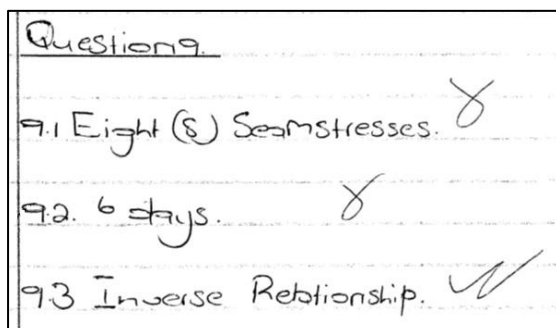 Question 9.
9.1 Eight (8) Seamstresses.
9.2. 6 days.
9.3 Inverse Relationship.